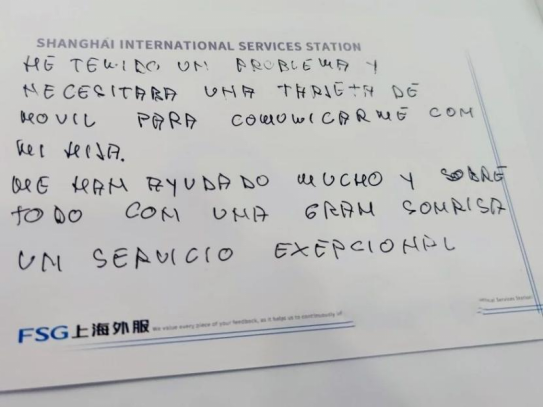 SHANGHAI INTERNATIONAL SERVICES STATION
HE TENIDO UN PROBLEMA Y
NECESITABA UNA TARJETA DE
MOVIL PARA COMUNICARME CON
MI HIJA.
ME HAN AYUDADO MUCHO Y SOBRE
TODO CON UNA GRAN SONRISA
UN SERVICIO EXEPCIONAL
FSG上海外服
We value every piece of your feedback, as it helps us to continuously
Services Station